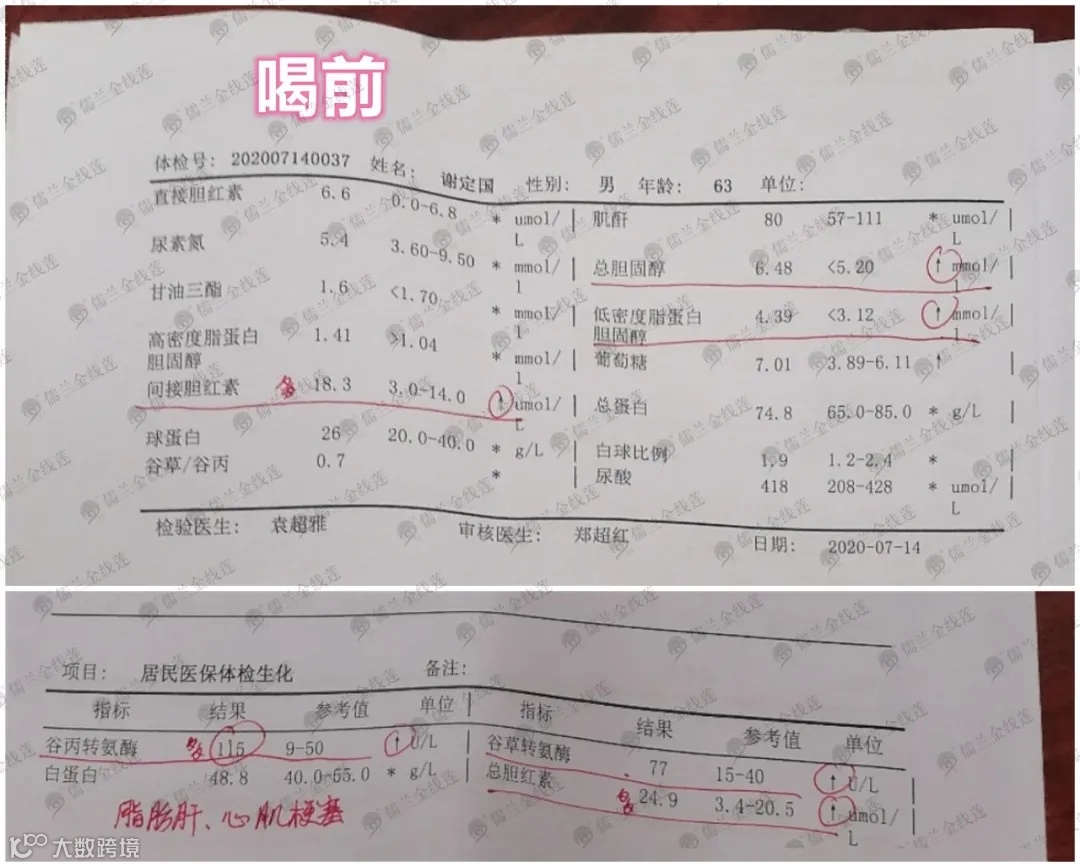 喝前
体检号: 202007140037 姓名: 谢定国 性别: 男 年龄: 63 单位:
直接胆红素 6.6 0.0-6.8 * umol/L 肌酐 80 57-111 * umol/L
尿素氮 5.4 3.60-9.50 * mmol/l 总胆固醇 6.48 <5.20 ↑ mmol/l
甘油三酯 1.6 <1.70 * mmol/l 低密度脂蛋白胆固醇 4.39 <3.12 ↑ mmol/l
高密度脂蛋白胆固醇 1.41 >1.04 * mmol/l 葡萄糖 7.01 3.89-6.11 ↑ mmol/l
间接胆红素 多 18.3 3.0-14.0 ↑ umol/L 总蛋白 74.8 65.0-85.0 * g/L
球蛋白 26 20.0-40.0 * g/L 白球比例 1.9 1.2-2.4 *
谷草/谷丙 0.7 * 尿酸 418 208-428 * umol/L
检验医生: 袁超雅 审核医生: 郑超红 日期: 2020-07-14
项目: 居民医保体检生化 备注:
指标 结果 参考值 单位 指标 结果 参考值 单位
谷丙转氨酶 多 115 9-50 ↑ U/L 谷草转氨酶 77 15-40 ↑ U/L
白蛋白 48.8 40.0-55.0 * g/L 总胆红素 多 24.9 3.4-20.5 ↑ umol/L
脂肪肝、心肌梗塞
大数跨境
儒兰金线莲